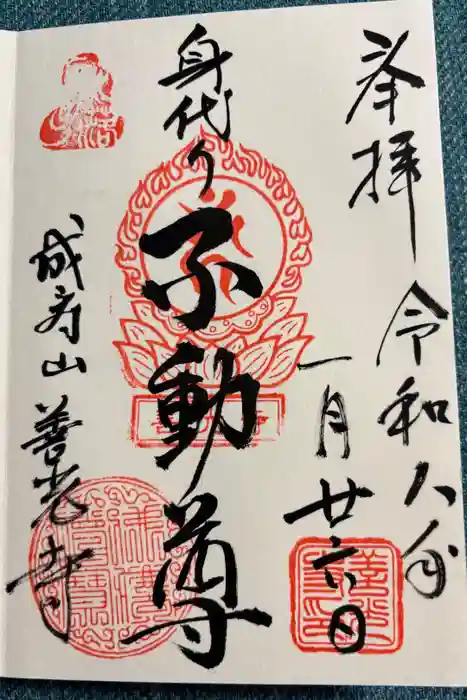 奉拝
令和八年
一月廿六日
身代り
不動尊
成寿山
善光寺